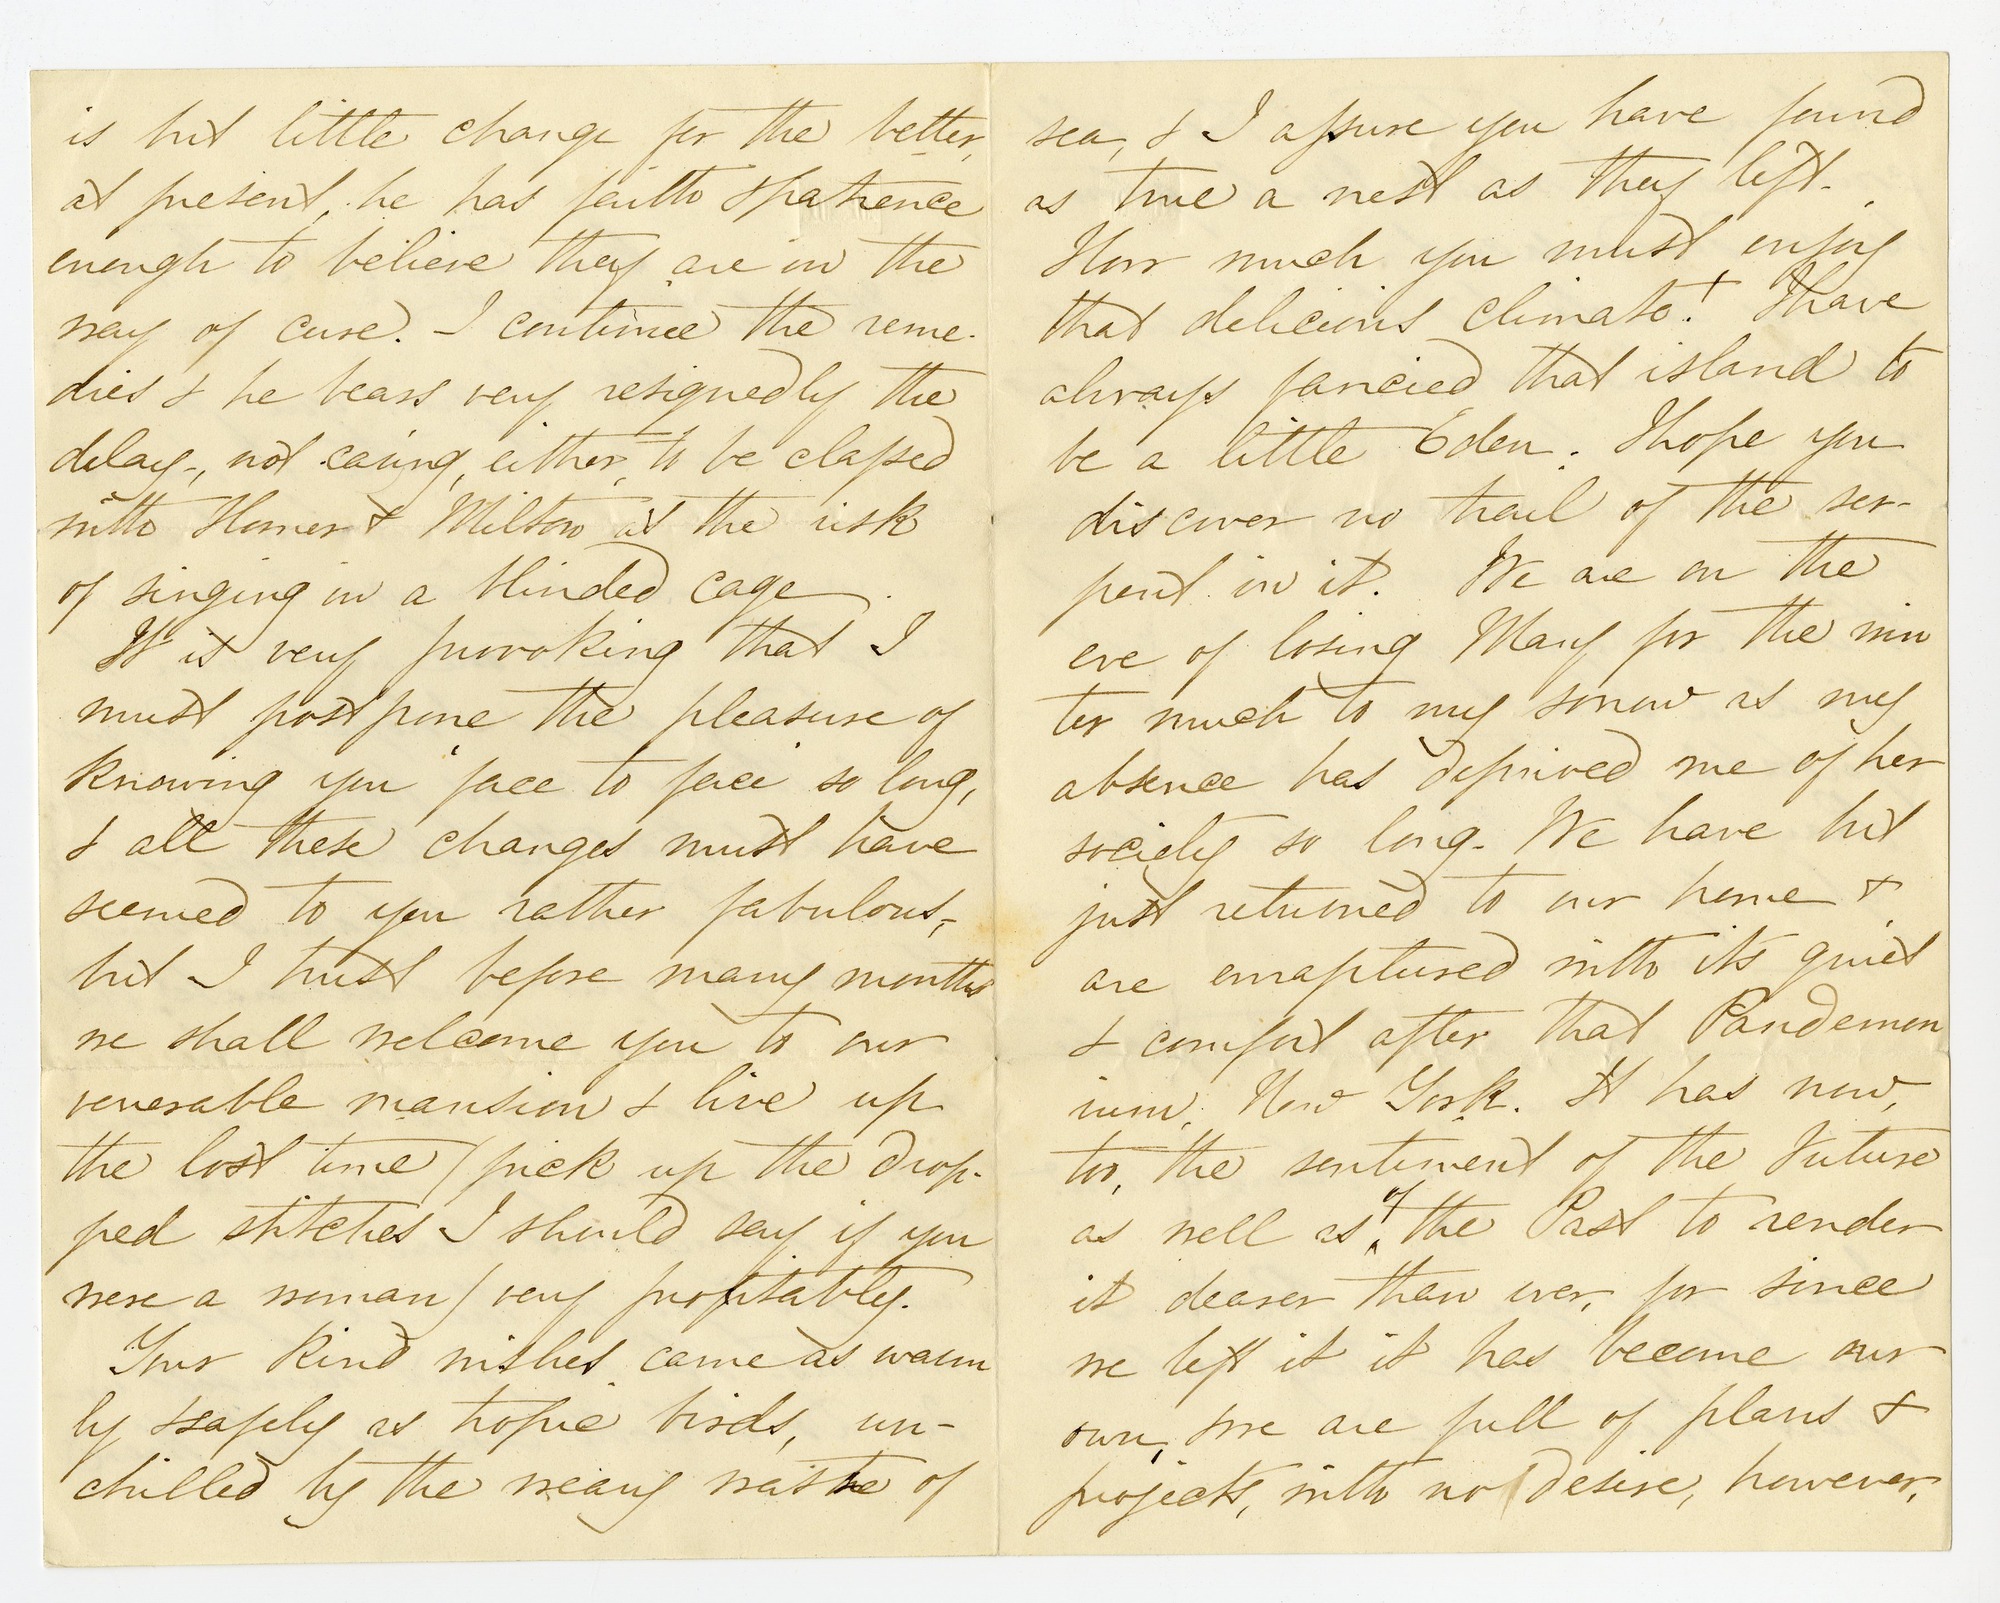 is but little change for the better,
at present, he has faith & patience
enough to believe they are in the
way of cure. - I continue the reme-
dies & he bears very resignedly the
delay-, not caring, either, to be classed
with Homer & Milton at the risk
of singing in a blinded cage.
It is very provoking that I
must postpone the pleasure of
knowing you face to face so long,
& all these changes must have
seemed to you rather fabulous,-
but I trust before many months
we shall welcome you to our
venerable mansion & live up
the lost time (pick up the drop-
ped stitches I should say if you
were a woman) very profitably.
Your kind wishes came as warm
ly & safely as tropic birds, un-
chilled by the weary waste of
sea, & I assure you have found
as true a nest as they left.
How much you must enjoy
that delicious climate! I have
always fancied that island to
be a little Eden. I hope you
discover no trail of the ser-
pent in it. We are on the
eve of losing Mary for the win
ter much to my sorrow as my
absence has deprived me of her
society so long. We have but
just returned to our home &
are enraptured with its quiet
& comfort after that Pandemon
ium, New York. It has now,
too, the sentiment of the Future
as well as of the Past to render
it dearer than ever, for since
we left it it has become our
own, & we are full of plans &
projects, with no desire, however,